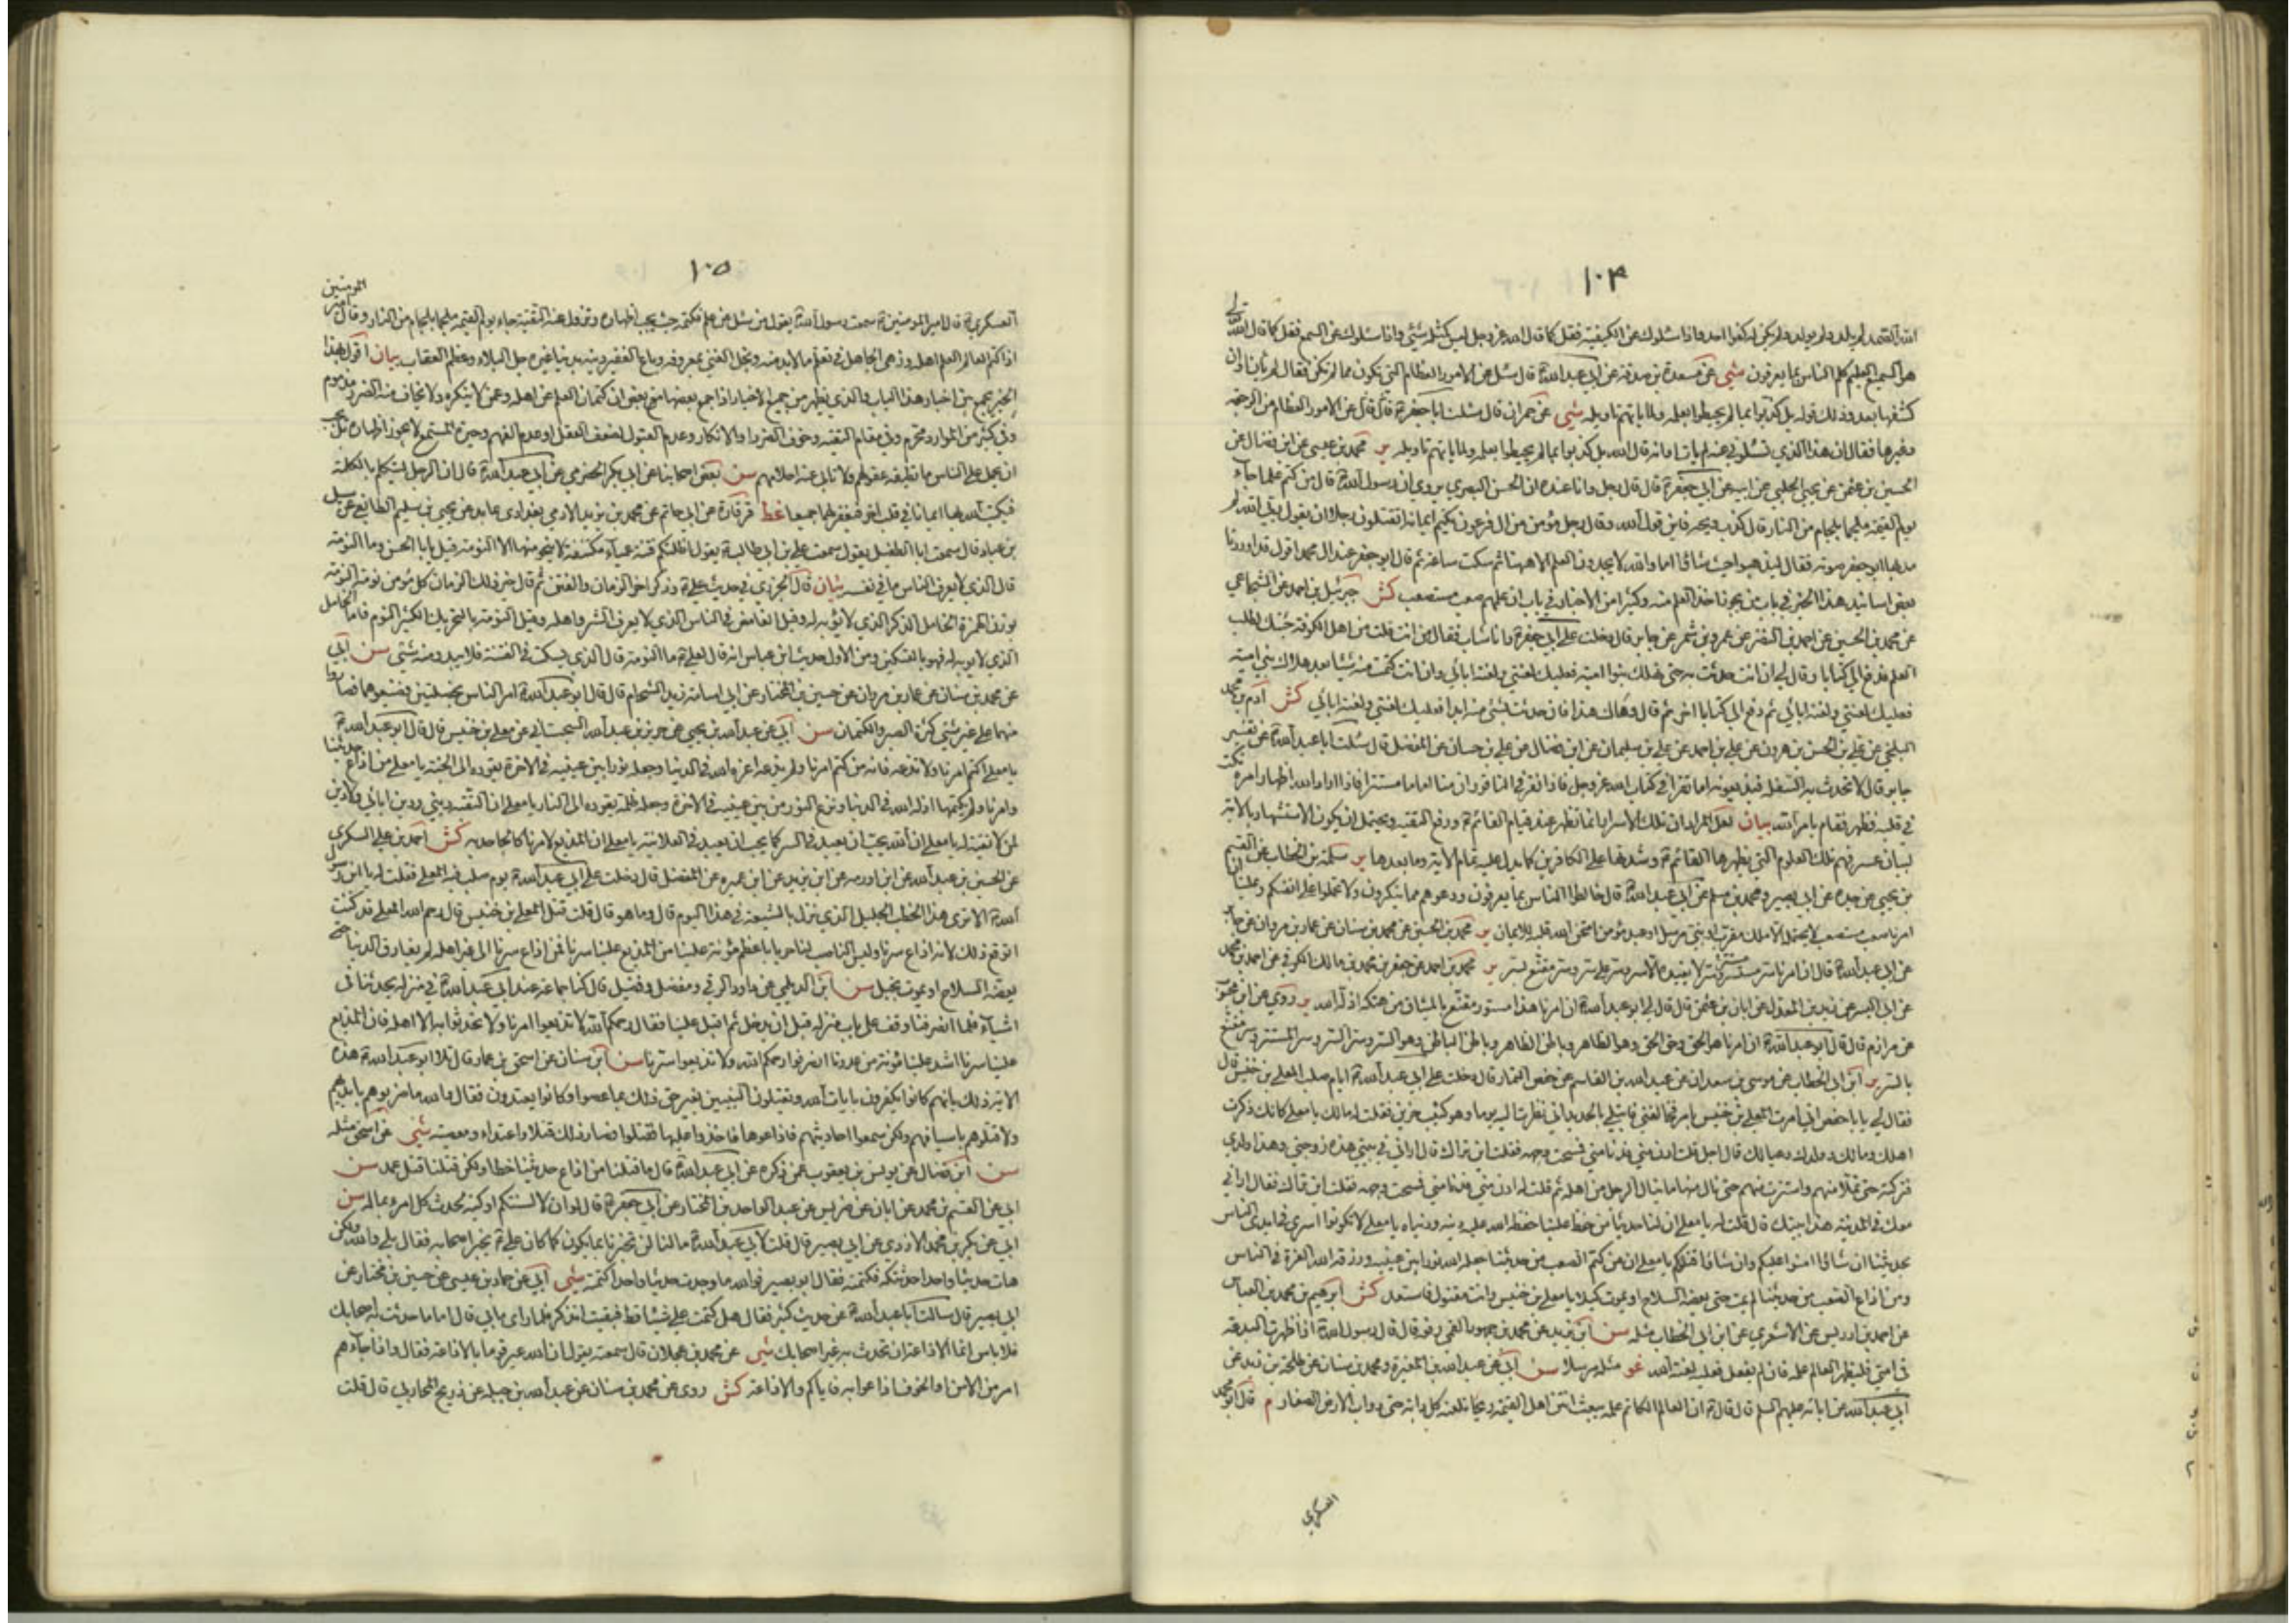 ١٠٤
الله الصمد لم يلد ولم يولد ولم يكن له كفوا احد واذا سئلوك عن الكيفية فقل كما قال الله عز وجل ليس كمثله شيئ واذا سئلوك عن السمع فقل كما قال الله
هو السميع العليم كلم الناس بما يعرفون شي عن مسعدة بن صدقة عن ابي عبد الله ع قال سئل عن الامور العظام التي تكون مما لم تكن فقال لم يأن اوان
كشفها بعد وذلك قوله بل كذبوا بما لم يحيطوا بعلمه ولما ياتهم تاويله شي عن حمران قال سئلت ابا جعفر ع عن الامور العظام من الرجعة
وغيرها فقال ان هذا الذي تسئلوني عنه لم يات اوانه قال الله بل كذبوا بما لم يحيطوا بعلمه ولما ياتهم تاويله ير محمد بن عيسى عن ابن فضال عن
الحسين بن عثمن عن يحيى الحلبي عن ابيه عن ابي جعفر ع قال قال رجل وانا عنده ان الحسن البصري يروي ان رسول الله ص قال من كتم علما جاء
يوم القيمة ملجما بلجام من النار قال كذب ويحه فاين قول الله وقال رجل مؤمن من ال فرعون يكتم ايمانه اتقتلون رجلا ان يقول ربي الله ثم
مد بها ابو جعفر صوته فقال ليذهبوا حيث شاؤا اما والله لا يجدون العلم الا ههنا ثم سكت ساعة ثم قال ابو جعفر عند ال محمد اقول قد اوردنا
بعض اسانيد هذا الخبر في باب من يجوز اخذ العلم منه وكثيرا من الاخبار في باب ان علمهم صعب مستصعب كش جبرئيل بن احمد عن الشجاعي
عن محمد بن الحسين عن احمد بن النضر عن عمرو بن شمر عن جابر قال دخلت على ابي جعفر ع وانا شاب فقال من انت قلت من اهل الكوفة جئتك لطلب
العلم فدفع الي كتابا وقال لي ان انت حدثت به حتى يهلك بنوا امية فعليك لعنتي ولعنة ابائي وان انت كتمت منه شيئا بعد هلاك بني امية
فعليك لعنتي ولعنة ابائي ثم دفع الي كتابا اخر ثم قال وهاك هذا فان حدثت بشئ منه ابدا فعليك لعنتي ولعنة ابائي كش ادم بن محمد
البلخي عن علي بن الحسن بن هرون عن علي بن احمد عن علي بن سليمان عن ابن فضال عن علي بن حسان عن المفضل قال سئلت ابا عبد الله ع عن تفسير
جابر قال لا تحدث به السفلة فيذيعونه اما تقرا في كتاب الله عز وجل فاذا نقر في الناقور ان منا اماما مستترا فاذا اراد الله اظهار امره نكت
في قلبه فظهر فقام بامر الله بيان لعل المراد ان تلك الاسرار انما تظهر عند قيام القائم ع ورفع التقية ويحتمل ان يكون الاستشهاد بالاية
لبيان عسر فهم تلك العلوم التي يظهرها القائم ع وشدتها على الكافرين كما يدل عليه تمام الاية وما بعدها ير سلمة بن الخطاب عن القسم
بن يحيى عن جده عن ابي بصير ومحمد بن مسلم عن ابي عبد الله ع قال خالطوا الناس بما يعرفون ودعوهم مما ينكرون ولا تحملوا على انفسكم وعلينا ان
امرنا صعب مستصعب لا يحتمله الا ملك مقرب او نبي مرسل او عبد مؤمن امتحن الله قلبه للايمان ير محمد بن الحسين عن محمد بن سنان عن عمار بن مروان عن جابر
عن ابي عبد الله ع قال ان امرنا سر مستتر وسر لا يفيده الا سر وسر على سر وسر مقنع بسر ير محمد بن احمد عن جعفر بن محمد بن مالك الكوفي عن احمد بن محمد
عن ابي اليسر عن زيد بن المعدل عن ابان بن عثمن قال قال لي ابو عبد الله ع ان امرنا هذا مستور مقنع بالميثاق من هتكه اذله الله ير وروي عن ابن محبوب
عن مرازم قال قال ابو عبد الله ع ان امرنا هو الحق وحق الحق وهو الظاهر وباطن الظاهر وباطن الباطن وهو السر وسر السر وسر المستسر وسر مقنع
بالسر ير ابن ابي الخطاب عن موسى بن سعدان عن عبد الله بن القاسم عن حفص التمار قال دخلت على ابي عبد الله ع ايام صلب المعلى بن خنيس قال
فقال لي يا با حفص اني امرت المعلى بن خنيس بامر فخالفني فابتلي بالحديد اني نظرت اليه يوما وهو كئيب حزين فقلت له مالك يا معلى كانك ذكرت
اهلك ومالك وولدك وعيالك قال اجل قلت ادن مني فدنا مني فمسحت وجهه فقلت اين تراك قال اراني في بيتي هذه زوجتي وهذا ولدي
فتركته حتى تملا منهم واستترت منهم حتى نال منها ما ينال الرجل من اهله ثم قلت له ادن مني فدنا مني فمسحت وجهه فقلت اين تراك فقال اراني
معك في المدينة هذا بيتك قال قلت له يا معلى ان لنا حديثا من حفظ علينا حفظ الله عليه دينه ودنياه يا معلى لا تكونوا اسرى في ايدي الناس
بحديثنا ان شاؤا امنوا عليكم وان شاؤا قتلوكم يا معلى ان من كتم الصعب من حديثنا جعله الله نورا بين عينيه ورزقه الله العزة في الناس
ومن اذاع الصعب من حديثنا لم يمت حتى يعضه السلاح او يموت كبلا يا معلى بن خنيس وانت مقتول فاستعد كش ابرهيم بن محمد بن العباس
عن احمد بن ادريس عن الاشعري عن ابن ابي الخطاب مثله سن ابن يزيد عن محمد بن جمهور القمي رفعه قال قال رسول الله ص اذا ظهرت البدعة
في امتي فليظهر العالم علمه فان لم يفعل فعليه لعنة الله غو مثله مرسلا سن ابي عن عبد الله بن المغيرة ومحمد بن سنان عن طلحة بن زيد عن
ابي عبد الله عن ابائه عليهم السلم قال قال ع ان العالم الكاتم علمه يبعث انتن اهل القيمة ريحا تلعنه كل دابة حتى دواب الارض الصغار م قال ابو محمد
العسكري
١٠٥
العسكري ع قال امير المؤمنين ع سمعت رسول الله ص يقول من سئل عن علم فكتمه حيث يجب اظهاره وتزول عنه التقية جاء يوم القيمة ملجما بلجام من النار وقال امير المؤمنين
اذا كتم العالم العلم اهله وزهى الجاهل في تعلم ما لابد منه وبخل الغني بمعروفه وباع الفقير دينه بدنيا غيره جل البلاء وعظم العقاب بيان اقول هذا
الخبر يجمع بين اخبار هذا الباب والذي يظهر من جميع الاخبار اذا جمع بعضها مع بعض ان كتمان العلم عن اهله وعمن لا ينكره ولا يخاف منه الضرر مذموم
وفي كثير من الموارد محرم وفي مقام التقية وخوف الضرر او الانكار وعدم القبول لضعف العقل او عدم الفهم وحيرة المستمع لا يجوز اظهاره بل يجب
ان يحمل على الناس ما تطيقه عقولهم ولا تابى عنه احلامهم سن بعض اصحابنا عن ابي بكر الحضرمي عن ابي عبد الله ع قال ان الرجل ليتكلم بالكلمة
فيكتب الله بها ايمانا في قلب اخر فيغفر لهما جميعا غط قرقارة عن ابي حاتم عن محمد بن يزيد الادمي بغدادي عابد عن يحيى بن سليم الطائفي عن سيل
بن عباد قال سمعت ابا الطفيل يقول سمعت علي بن ابي طالب ع يقول اظلتكم فتنة عمياء مكتنفة لا ينجو منها الا النومة قيل يا با الحسن وما النومة
قال الذي لا يعرف الناس ما في نفسه بيان قال الجزري في حديث علي ع وذكر اخر الزمان والفتن ثم قال خير ذلك الزمان كل مؤمن نومة النومة
بوزن الهمزة الخامل الذكر الذي لا يؤبه له وقيل الغامض في الناس الذي لا يعرف الشر واهله وقيل النومة بالتحريك الكثير النوم فاما الخامل
الذي لا يؤبه له فهو بالتسكين ومن الاول حديث ابن عباس انه قال لعلي ع ما النومة قال الذي يسكت في الفتنة فلا يبدو منه شئ سن ابي
عن محمد بن سنان عن عمار بن مروان عن حسين بن المختار عن ابي اسامة زيد الشحام قال قال ابو عبد الله ع امر الناس بخصلتين فضيعوهما فصاروا
منهما على غير شئ كثرة الصبر والكتمان سن ابي عن عبد الله بن يحيى عن حريز بن عبد الله السجستاني عن معلى بن خنيس قال قال ابو عبد الله ع
يا معلى اكتم امرنا ولا تذعه فانه من كتم امرنا ولم يذعه اعزه الله في الدنيا وجعله نورا بين عينيه في الاخرة يقوده الى الجنة يا معلى من اذاع حديثنا
وامرنا ولم يكتمها اذله الله في الدنيا ونزع النور من بين عينيه في الاخرة وجعله ظلمة يقوده الى النار يا معلى ان التقية ديني ودين ابائي ولا دين
لمن لا تقية له يا معلى ان الله يحب ان يعبد في السر كما يحب ان يعبد في العلانية يا معلى ان المذيع لامرنا كالجاحد به كش احمد بن علي السكري
عن الحسين بن عبد الله عن ابن اورمة عن ابن يزيد عن ابن عميرة عن المفضل قال دخلت على ابي عبد الله ع يوم صلب فيه المعلى فقلت له يا ابن رسول
الله ص الا ترى هذا الخطب الجليل الذي نزل بالشيعة في هذا اليوم قال وما هو قال قلت قتل المعلى بن خنيس قال رحم الله المعلى قد كنت
اتوقع ذلك لانه اذاع سرنا وليس الناصب لنا حربا باعظم مؤنة علينا من المذيع علينا سرنا فمن اذاع سرنا الى غير اهله لم يفارق الدنيا حتى
يعضه السلاح او يموت بخبل سن ابن الديلمي عن داود الرقي ومفضل وفضيل قال كنا جماعة عند ابي عبد الله ع في منزله يحدثنا في
اشياء فلما انصرفنا وقف على باب منزله قبل ان يدخل ثم اقبل علينا فقال رحمكم الله لا تذيعوا امرنا ولا تحدثوا به الا اهله فان المذيع
علينا سرنا اشد علينا مؤنة من عدونا انصرفوا رحمكم الله ولا تذيعوا سرنا سن ابن سنان عن اسحق بن عمار قال تلا ابو عبد الله ع هذه
الاية ذلك بانهم كانوا يكفرون بايات الله ويقتلون النبيين بغير حق ذلك بما عصوا وكانوا يعتدون فقال والله ما ضربوهم بايديهم
ولا قتلوهم باسيافهم ولكن سمعوا احاديثهم فاذاعوها فاخذوا عليها فقتلوا فصار ذلك قتلا واعتداء ومعصية شي عن اسحق مثله
سن ابن فضال عن يونس بن يعقوب عمن ذكره عن ابي عبد الله ع قال ما قتلنا من اذاع حديثنا خطا ولكن قتلنا قتل عمد سن
ابي عن القسم بن محمد عن ابان عن ضريس عن عبد الواحد بن المختار عن ابي جعفر ع قال لو ان لالسنتكم اوكية لحدث كل امرء بما له سن
ابي عن بكر بن محمد الازدي عن ابي بصير قال قلت لابي عبد الله ع ما لنا لن تخبرنا بما يكون كما كان علي ع يخبر اصحابه فقال بلى والله ولكن
هات حديثا واحدا حدثتكه فكتمته فقال ابو بصير فوالله ما وجدت حديثا واحدا كتمته شي ابي عن حماد بن عيسى عن حسين بن مختار عن
ابي بصير قال سالت ابا عبد الله ع عن حديث كثير فقال هل كتمت علي شيئا قط فبقيت اتذكر فلما راى ما بي قال اما ما حدثت به اصحابك
فلا باس انما الاذاعة ان تحدث به غير اصحابك شي عن محمد بن عجلان قال سمعته يقول ان الله عير قوما بالاذاعة فقال واذا جاءهم
امر من الامن او الخوف اذاعوا به فاياكم والاذاعة كش روى عن محمد بن سنان عن عبد الله بن جبلة عن ذريح المحاربي قال قلت